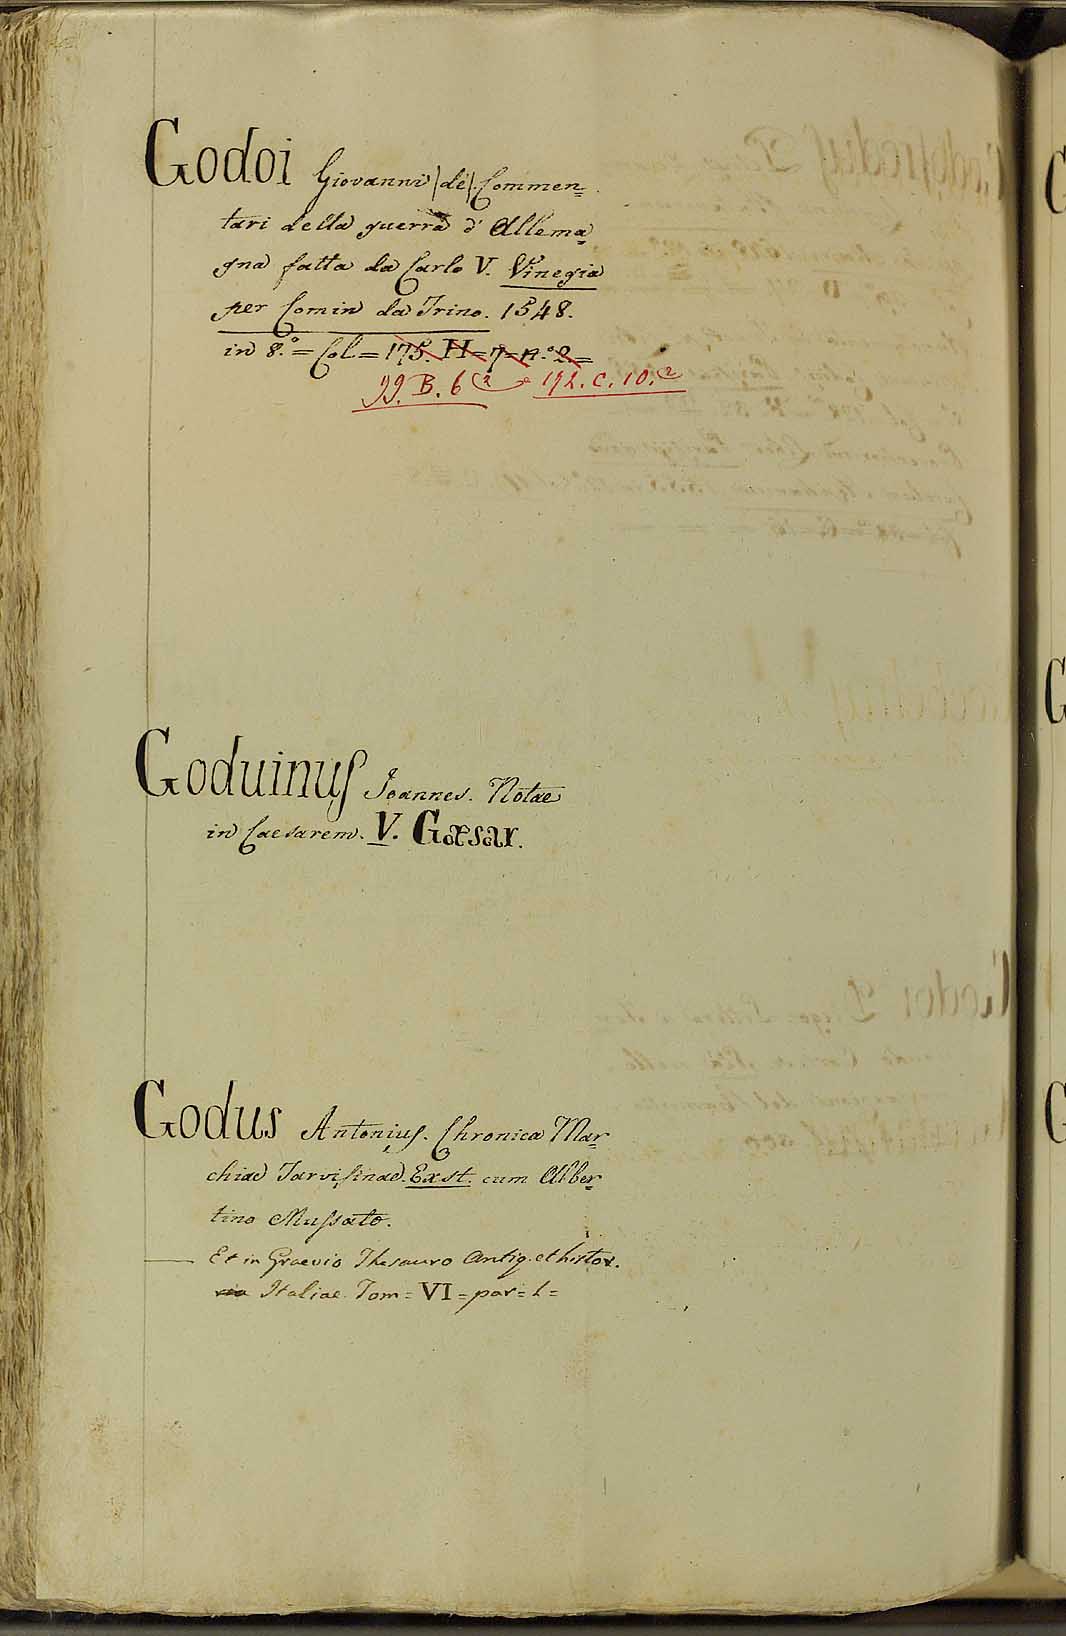 Godoi Giovanni |de|. Commen=
tari della guerra d' Allema=
gna fatta da Carlo V. Vinegia
per Comin da Trino. 1548.
in 8.º = Col = 175. H = 7 = n.º 2 =
99. B. 6 172. C. 10.
Goduinus Joannes. Notae
in Caesarem. V. Cæsar.
Godus Antonius. Chronica Mar=
chiae Tarvisinae. Exst. cum Alber=
tino Mussato.
Et in Graevio Thesauro Antiq. et histor.
Italiae Tom = VI = par = 1 =